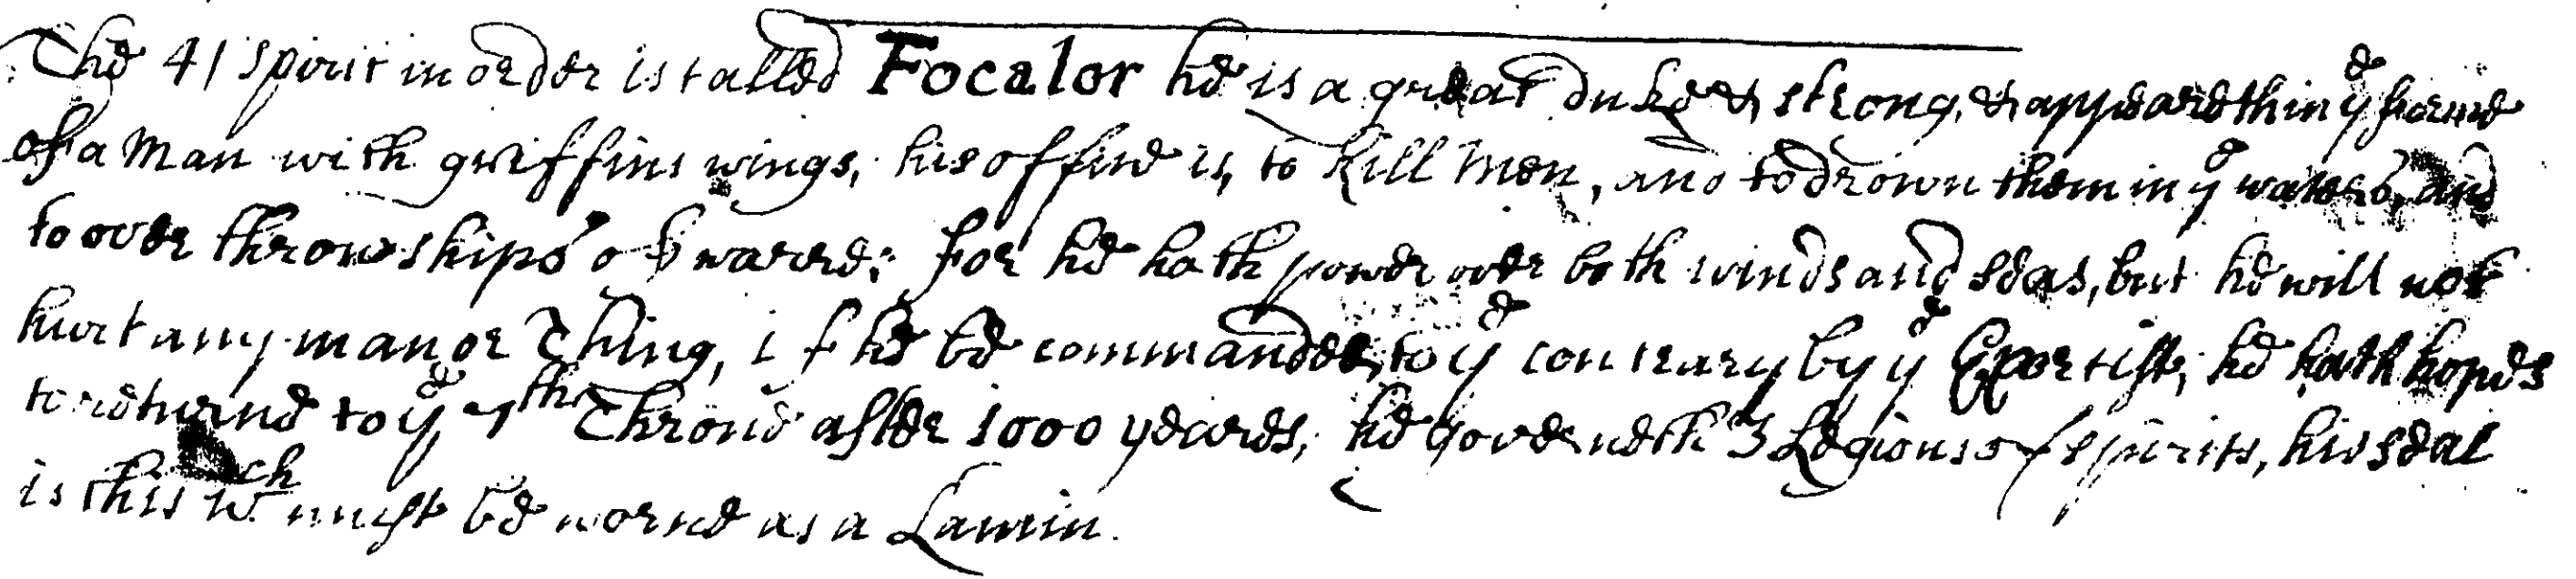 The 41 spirit in order is called Focalor he is a great duke & strong, & appeareth in yᵉ forme
of a Man with griffins wings, his office is, to kill Men, and to drown them in yᵉ waters, and
to over throw ships of warre; for he hath power over both winds and seas, but he will not
hurt any man or Thing, if he be commanded, to yᵉ contrary by yᵉ Exorcist, he hath hopes
to returne to yᵉ 7th Throne after 1000 yeares, he governeth 3 Legions of spirits, his seal
is this wch must be worne as a Lamin.